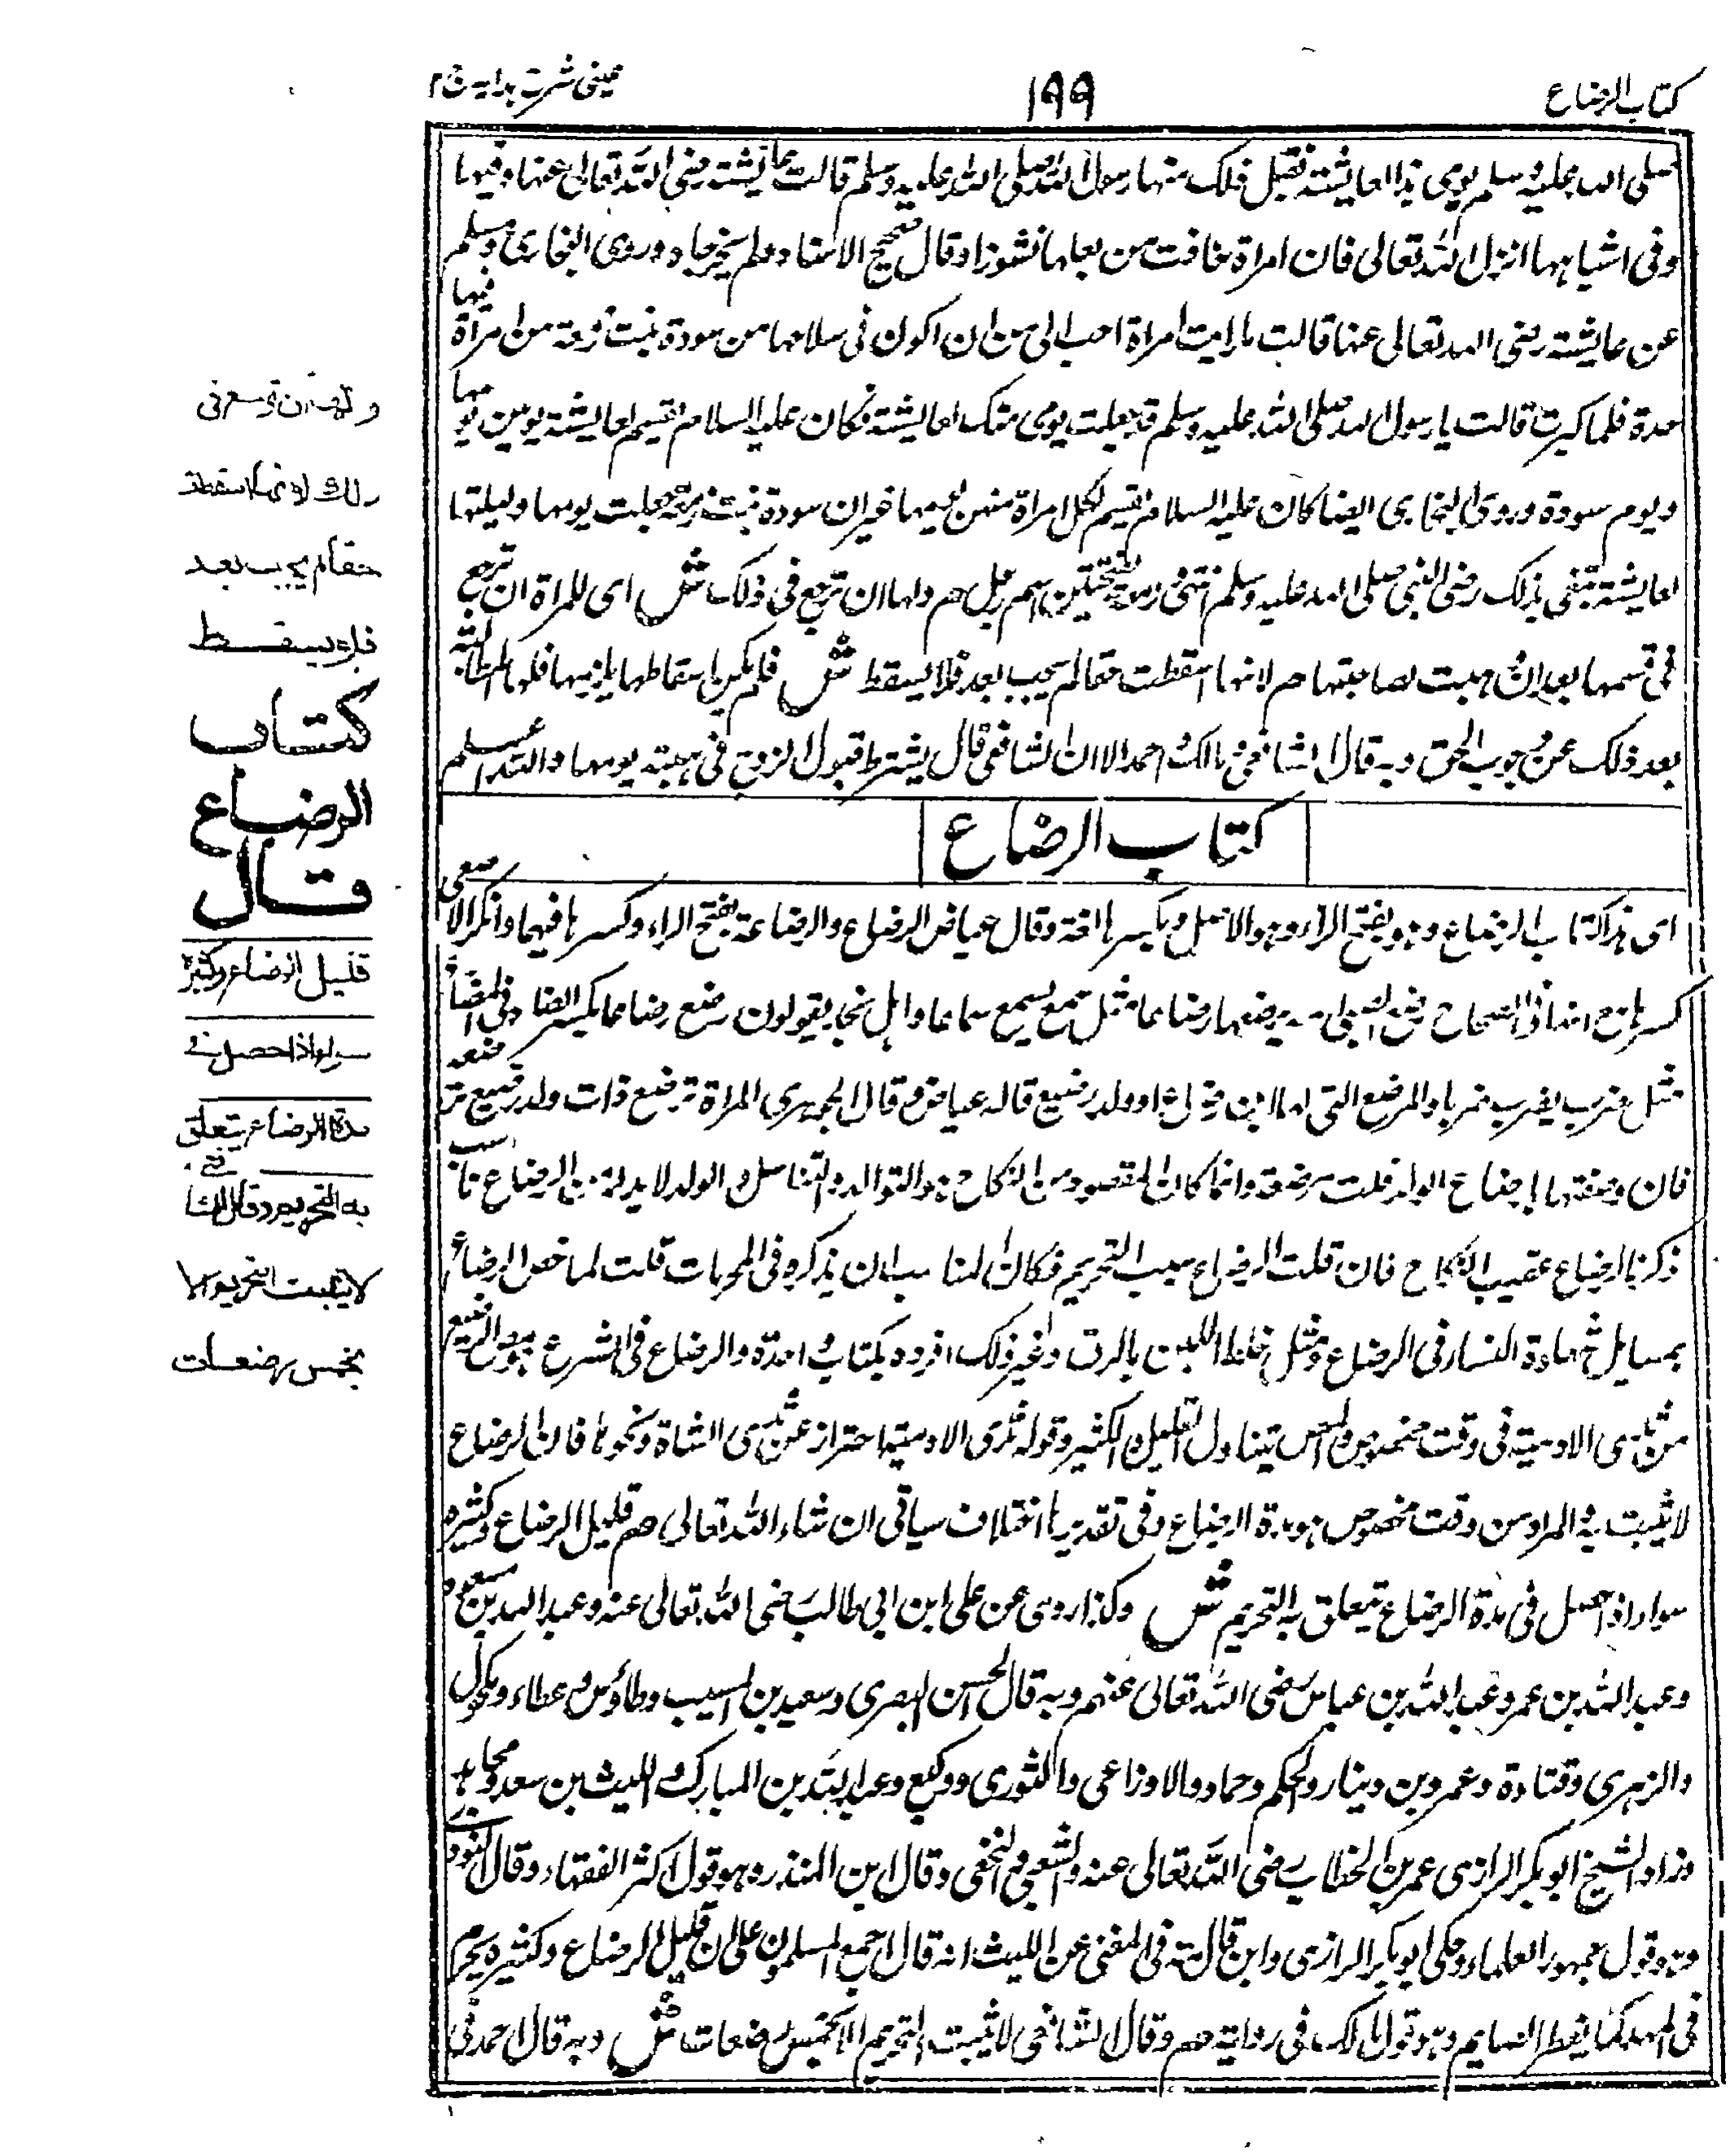 كتاب الرضاع
١٩٩
عينى شرح هدايه ج ٢
صلى الله عليه وسلم يومى هذا لعايشة فقبل ذلك منها رسول الله صلى الله عليه وسلم قالت عايشة رضى الله تعالى عنها وفيها
وفى اشباهها انزل الله تعالى فان امراة خافت من بعلها نشوزا وقال صحيح الاسناد ولم يخرجاه وروى البخارى ومسلم
عن عايشة رضى الله تعالى عنها قالت ما رايت امراة احب الى من ان اكون فى سلاخها من سودة بنت زمعة من امراة فيها
حدة فلما كبرت قالت يا رسول الله صلى الله عليه وسلم قد جعلت يومى منك لعايشة فكان عليه السلام يقسم لعايشة يومين يومها
ويوم سودة وروى البخارى ايضا كان عليه السلام يقسم لكل امراة منهن يومها غير ان سودة بنت زمعة جعلت يومها وليلتها
لعايشة تبتغى بذلك رضى النبى صلى الله عليه وسلم انتهى زمعة بفتحتين اسم رجل هم ولها ان ترجع فى ذلك ش اى للمراة ان ترجع
فى قسمها بعد ان وهبت لصاحبتها هم لانها اسقطت حقا لم يجب بعد فلا يسقط ش فلم يكن اسقاطها يلزمها فلها المطالبة
بعد ذلك عن وجوب الحق وبه قال الشافعى ومالك واحمد الا ان الشافعى قال يشترط قبول الزوج فى هبته يومها والله اعلم
كتاب الرضاع
اى هذا كتاب الرضاع وهو بفتح الراء وهو الاصل وبكسرها لغة وقال عياض الرضاع والرضاعة بفتح الراء وكسرها فيهما وانكر الاصمعى
كسرها مع الهاء فى الصحاح رضع الصبى امه يرضعها رضاعا مثل سمع يسمع سماعا واهل نجد يقولون رضع رضاعا بكسر الضاد وفى المضارع
مثل ضرب يضرب ضربا والمرضع التى لها لبن رضاع او ولد رضيع قاله عياض وقال الجوهرى المراة مرضع ذات ولد رضيع ترضعه
فان وصفتها بارضاع الولد قلت مرضعة ولما كان المقصود من النكاح هو التوالد والتناسل والولد لا بد له من الرضاع ناسب
ذكر الرضاع عقيب النكاح فان قلت الرضاع سبب التحريم فكان المناسب ان يذكره فى المحرمات قلت لما خص الرضاع
بمسايل كشهادة النساء فى الرضاع ومثل خلط اللبن بالدواء وغير ذلك افرده بكتاب واحدة والرضاع فى الشرع هو مص الرضيع
من ثدى الادمية فى وقت مخصوص والمص يتناول القليل والكثير وقوله ثدى الادمية احتراز عن ثدى الشاة ونحوها فان الرضاع
لا يثبت به والمراد من وقت مخصوص هو مدة الرضاع وفى تقديرها اختلاف سياتى ان شاء الله تعالى هم قليل الرضاع وكثيره
سواء اذا حصل فى مدة الرضاع تيعلق به التحريم ش وكذا روى عن على ابن ابى طالب رضى الله تعالى عنه وعبد الله بن مسعود
وعبد الله بن عمر وعبد الله بن عباس رضى الله تعالى عنهم وبه قال الحسن البصرى وسعيد بن المسيب وطاؤس وعطاء ومكحول
والزهرى وقتادة وعمرو بن دينار والحكم وحماد والاوزاعى والثورى ووكيع وعبد الله بن المبارك والليث بن سعد ومجاهد
وزاد الشيخ ابو بكر الرازى عمر بن الخطاب رضى الله تعالى عنه والشعبى والنخعى وقال ابن المنذر وهو قول اكثر الفقهاء وقال النووى
وهو قول جمهور العلماء وحكى ابو بكر الرازى وابن قدامة فى المغنى عن الليث انه قال اجمع المسلمون على ان قليل الرضاع وكثيره يحرم
فى المهد كما يفطر الصايم وهو قول مالك فى رواية هم وقال الشافعى لا يثبت التحريم الا بخمس رضعات ش وبه قال احمد فى
ولها ان ترجع فى
ذلك لانها اسقطت
حقا لم يجب بعد
فلا يسقط
كتاب
الرضاع
قال
قليل الرضاع وكثيره
سواء اذا حصل فى
مدة الرضاع يتعلق
به التحريم وقال الشافعى
لا يثبت التحريم الا
بخمس رضعات